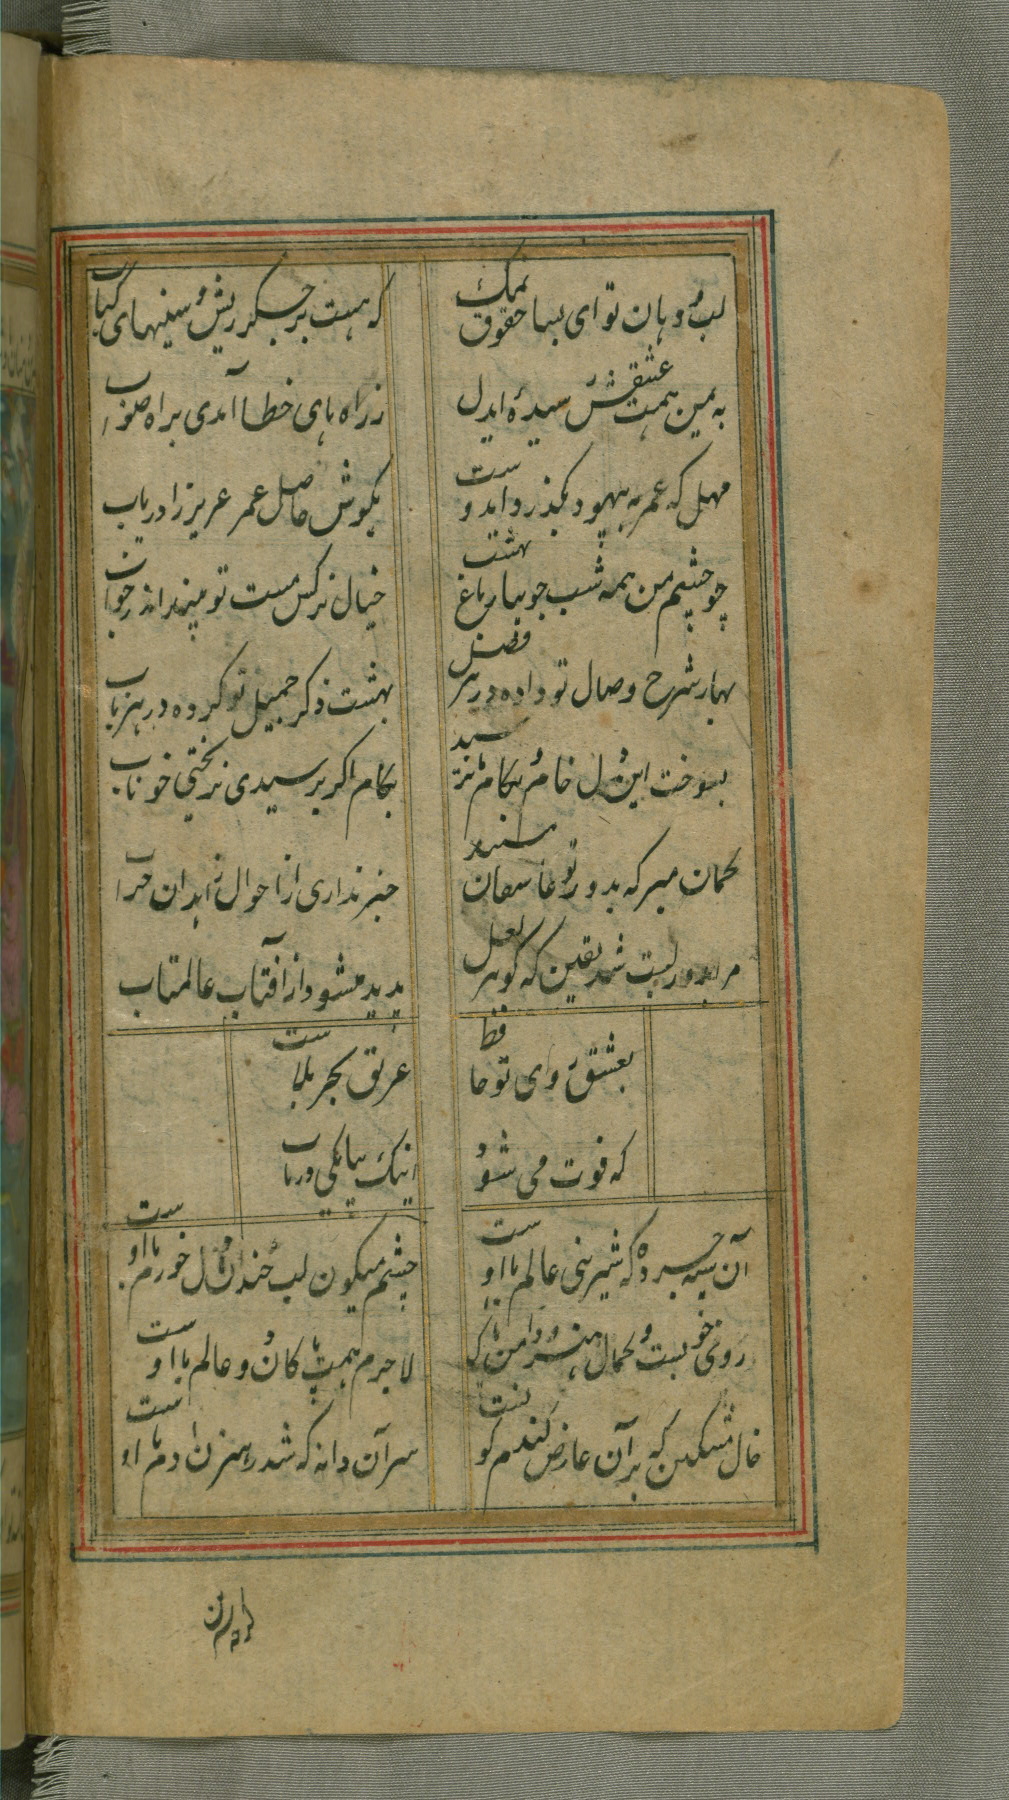 لب و دهان تو ای بسا حقوق نمک
که هست بر جگر ریش و سینهای کباب
به یمن همت عشقش رسیدهٔ ایدل
ز راه های خطا آمدی براه صواب
مهل که عمر به بیهوده بگذرد ای دوست
بکوش حاصل عمر عزیز را دریاب
چو چشم من همه شب جویبار باغ بهشت
خیال نرکس مست تو بیند اندر خواب
بهار شرح وصال تو داده در هر فصل
بهشت ذکر جمیل تو کرده در هر باب
بسوخت این دل خام و بکام نرسید
بکام اکر برسیدی نریختی خوناب
کمان مبر که بدور تو عاشقان مستند
خبر نداری از احوال زاهدان خراب
مرا بدور لبت شد یقین که کوهر لعل
پدید میشود از آفتاب عالمتاب
بعشق روی تو حافظ
غریق بحر بلاست
که فوت می شود
اینک بیا یکی دریاب
آن سیه چرده که شیرینی عالم با اوست
چشم میکون لب خندان دل خرم با اوست
روی خوبست و کمال هنر و دامن پاک
لاجرم همت پاکان دو عالم با اوست
خال مشکین که بر آن عارض کندم کونست
سر آن دانه که شد رهزن آدم با اوست